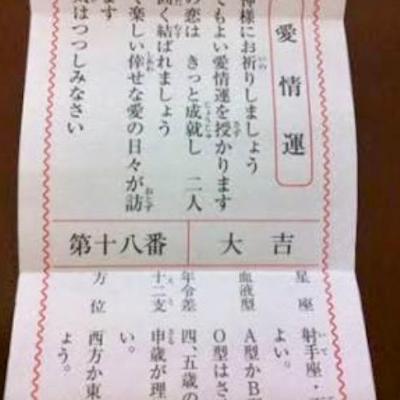 愛情運
神様にお祈りしましょう
てもよい愛情運を授かります
の恋は きっと成就し 二人
固く結ばれましょう
楽しい倖せな愛の日々が訪
ます
気はつつしみなさい
大吉
第十八番
星座 射手座・
よい。
血液型 A型かB型
O型はさ
年令差 四、五歳の
十二支 申歳が理
い。
方位 西方か東
ょう。